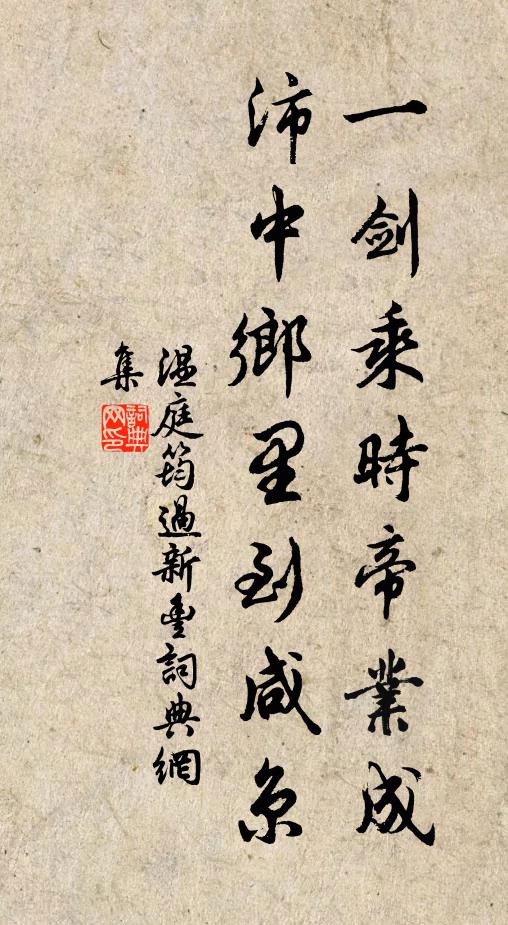 一劍乘時帝業成
沛中鄉里到咸京
温庭筠過新豊詞典網
集
詞典
网印